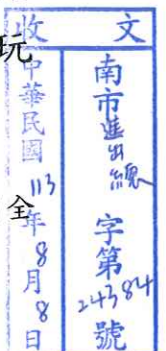 收文
南市進出總字第24384號
中華民國113年8月8日
玩
全